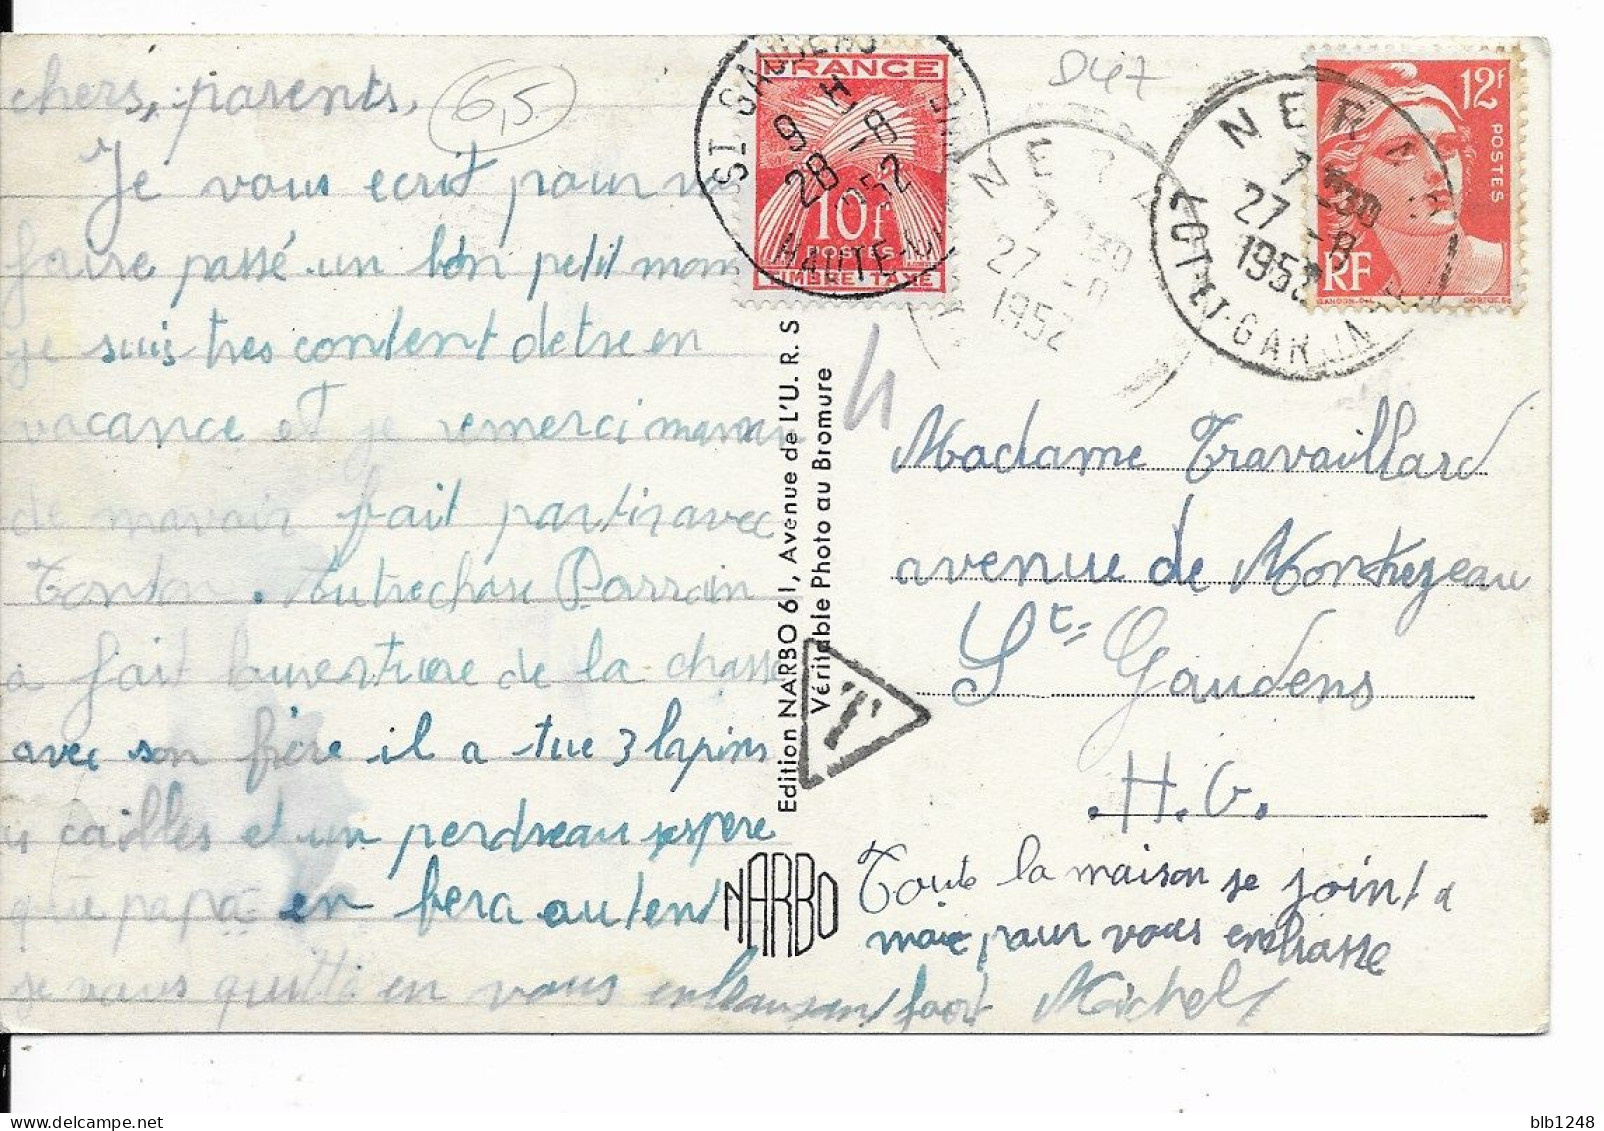 chers, parents,
6,5
Je vous ecrit pour v
faire passé un bon petit mom
je suis tres content detre en
vacance et je remerci maman
de mavoir fait partir avec
Tonton. Autrechose Parrain
a fait louverture de la chasse
avec son frère il a tue 3 lapins
4 cailles et un perdreau jespere
que papa en fera autent
je vous quitte en vous
fort Michel
Toute la maison se joint a
moie pour vous embrasse
Edition NARBO 61, Avenue de L'U. R. S
Véritable Photo au Bromure
NARBO
T
4
D47
FRANCE
10f
POSTES
TIMBRE TAXE
ST GAUDENS
9 H
28 -8
1952
HAUTE
NERA
7 H30
27 -8
1952
NERAC
7 H30
27 -8
1952
LOT-ET-GARONNE
12f
POSTES
RF
GANDON
CORTOT
Madame Travaillard
avenue de Montrejeau
St= Gaudens
H. G.
blb1248